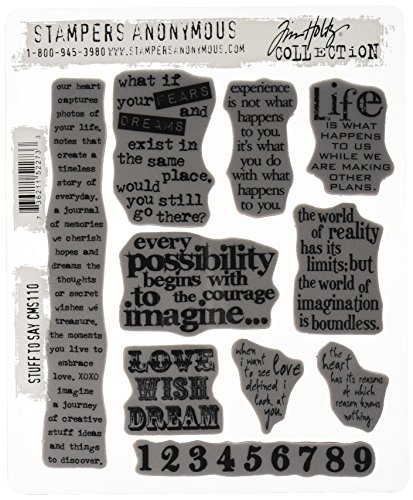 STAMPERS ANONYMOUS
1-800-945-3980 www.STAMPERSANONYMOUS.COM
Tim Holtz
COLLECTION
our heart
captures
photos of
your life,
notes that
create a
timeless
story of
everyday.
a journal
of memories
we cherish
hopes and
dreams the
thoughts
or secret
wishes we
treasure.
the moments
you live to
embrace
love, XOXO
imagine
a journey
of creative
stuff ideas
and things
to discover.
what if
your FEARS
and
DREAMS
exist in
the same
place.
would
you still
go there?
experience
is not what
happens
to you.
it's what
you do
with what
happens
to you.
Life
IS WHAT
HAPPENS
TO US
WHILE WE
ARE MAKING
OTHER
PLANS.
every
possibility
begins with
the courage
to
imagine...
the world
of reality
has its
limits; but
the world of
imagination
is boundless.
LOVE
WISH
DREAM
when
i want
to see love
defined i
look at
you.
the
heart
has its reasons
of which
reason knows
nothing.
1 2 3 4 5 6 7 8 9
STUFF TO SAY CMS110